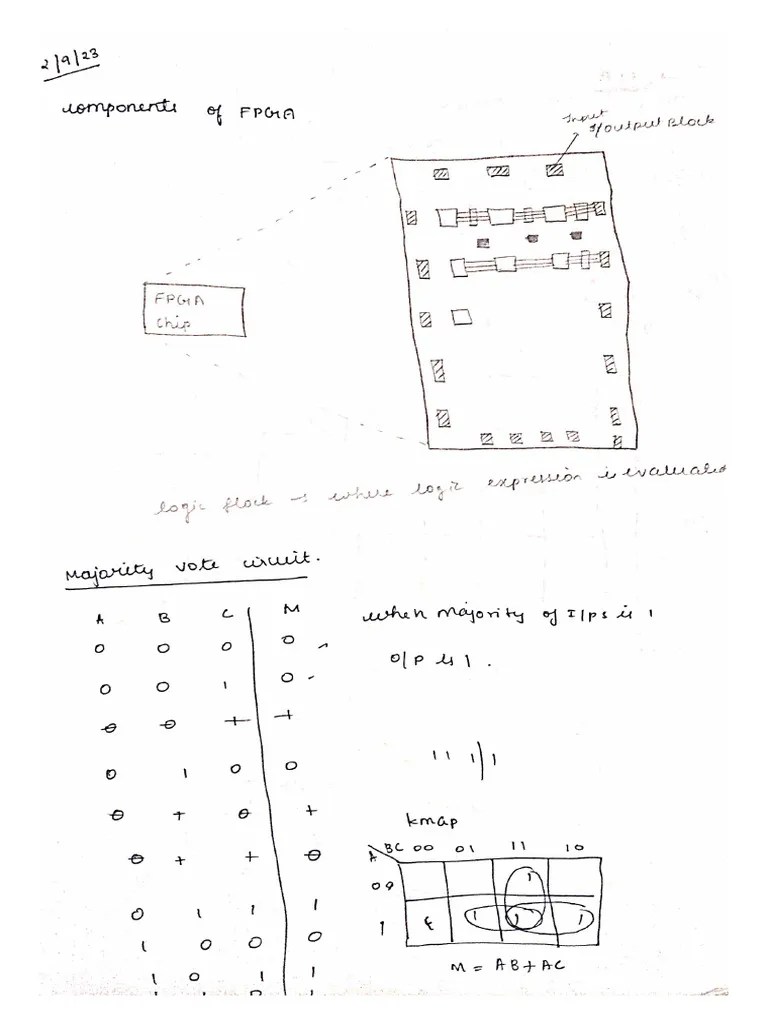 2/9/23
components of FPGA
Input
I/output Block
FPGA
chip
logic block → where logic expression is evaluated
Majority vote circuit.
A B C M
0 0 0 0
0 0 1 0
0 0 1 1
0 1 0 0
0 1 0 1
0 1 1 0
0 1 1 1
1 0 0 0
1 0 1 1
when majority of I/ps is 1
O/P is 1.
11 1 1
kmap
A BC 00 01 11 10
0 1
1 1 1 1
M = AB + AC